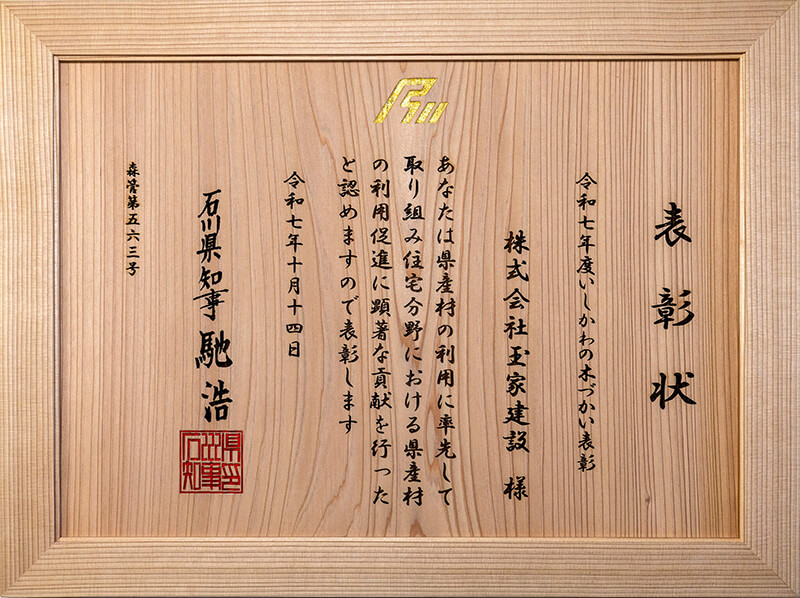 表彰状
令和七年度いしかわの木づかい表彰
株式会社玉家建設 様
あなたは県産材の利用に率先して
取り組み住宅分野における県産材
の利用促進に顕著な貢献を行った
と認めますので表彰します
令和七年十月十四日
石川県知事 馳浩
森管第五六三号